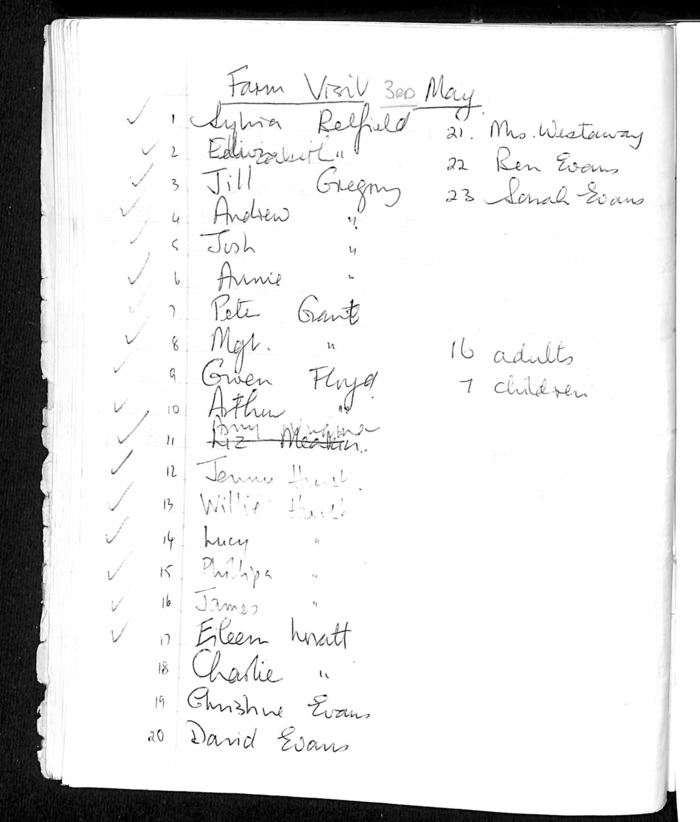 Farm Visit 3RD May
1 Sylvia Belfield
2 Elizabeth "
3 Jill Gregory
4 Andrew "
5 Josh "
6 Annie "
7 Pete Grant
8 Mgt. "
9 Gwen Floyd
10 Arthur "
Amy
11 Liz Meakin.
12 Jenny Hurst
13 Willie Hurst
14 Lucy "
15 Phillipa "
16 James "
17 Eileen
18 Charlie "
19 Christine Evans
20 David Evans
21. Mrs. Westaway
22 Ben Evans
23 Sarah Evans
16 adults
7 children